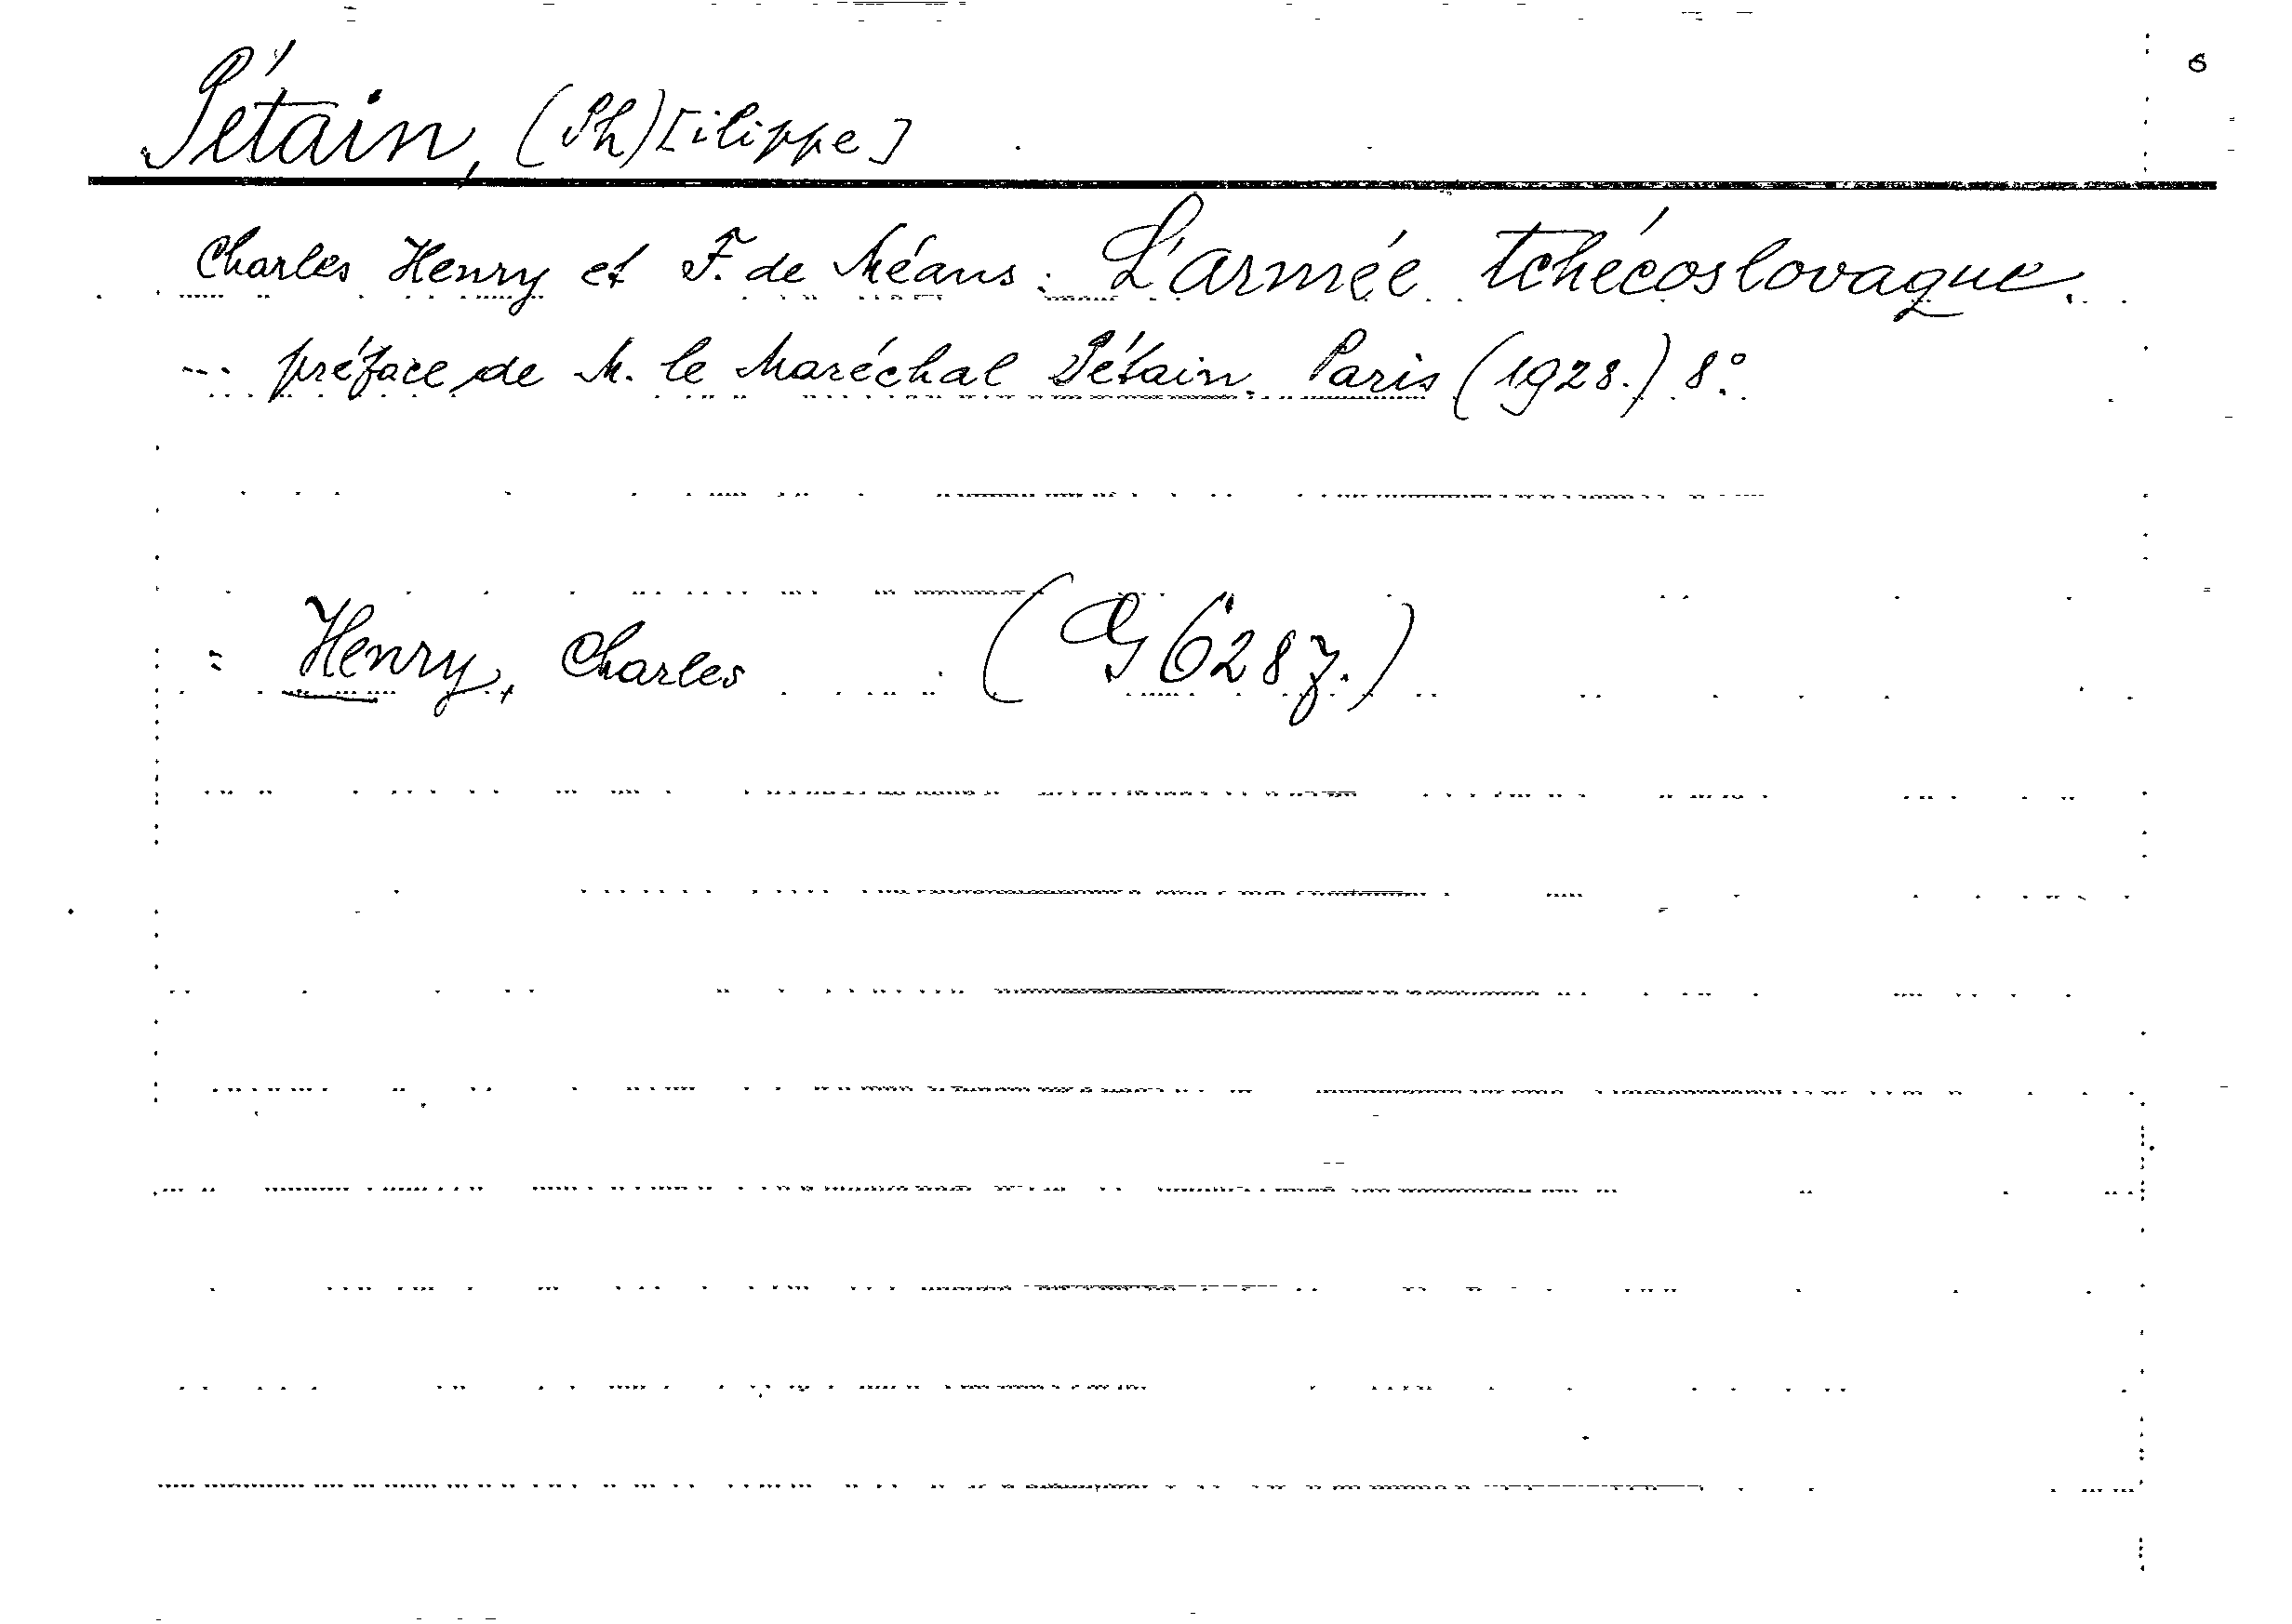 6
Pétain, (Ph)[ilippe]
Charles Henry et F. de Méans: L'armée tchécoslovaque.
--- préface de M. le Maréchal Pétain. Paris (1928.) 8°.
= Henry, Charles (G 6287.)